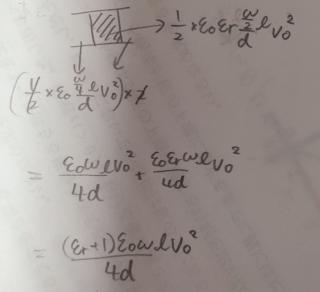 1/2 × ε0 εr (w/2)/d l V0^2
(1/2 × ε0 (w/4)/d l V0^2) × 2
= ε0 w l V0^2 / 4d + ε0 εr w l V0^2 / 4d
= (εr+1) ε0 w l V0^2 / 4d